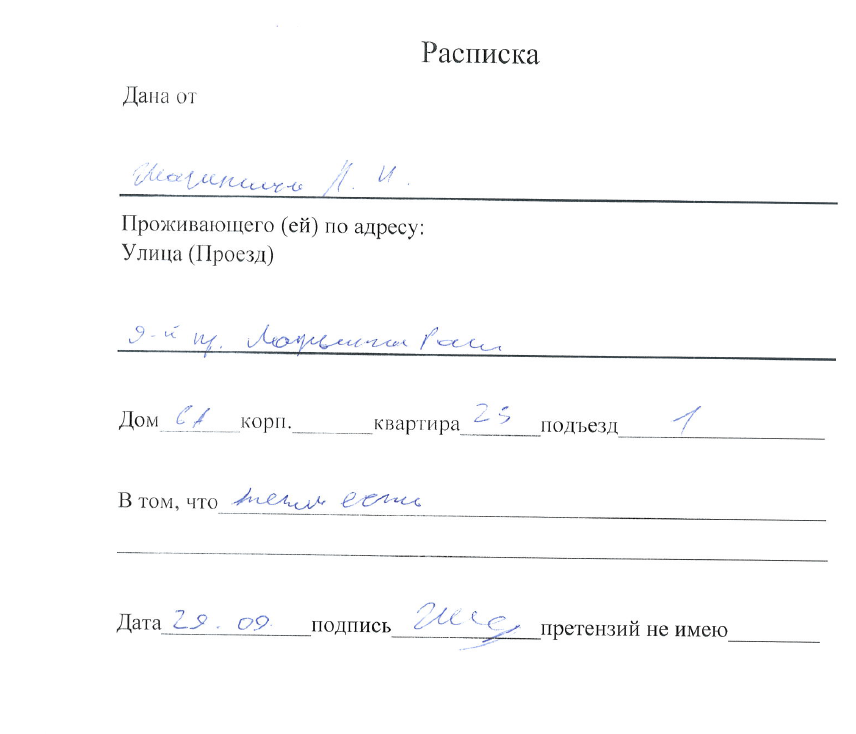 Расписка
Дана от
И.
Проживающего (ей) по адресу:
Улица (Проезд)
9-й пр. Марьиной Рощи
Дом 6А корп. квартира 25 подъезд 1
В том, что тепло есть
Дата 29.09. подпись претензий не имею